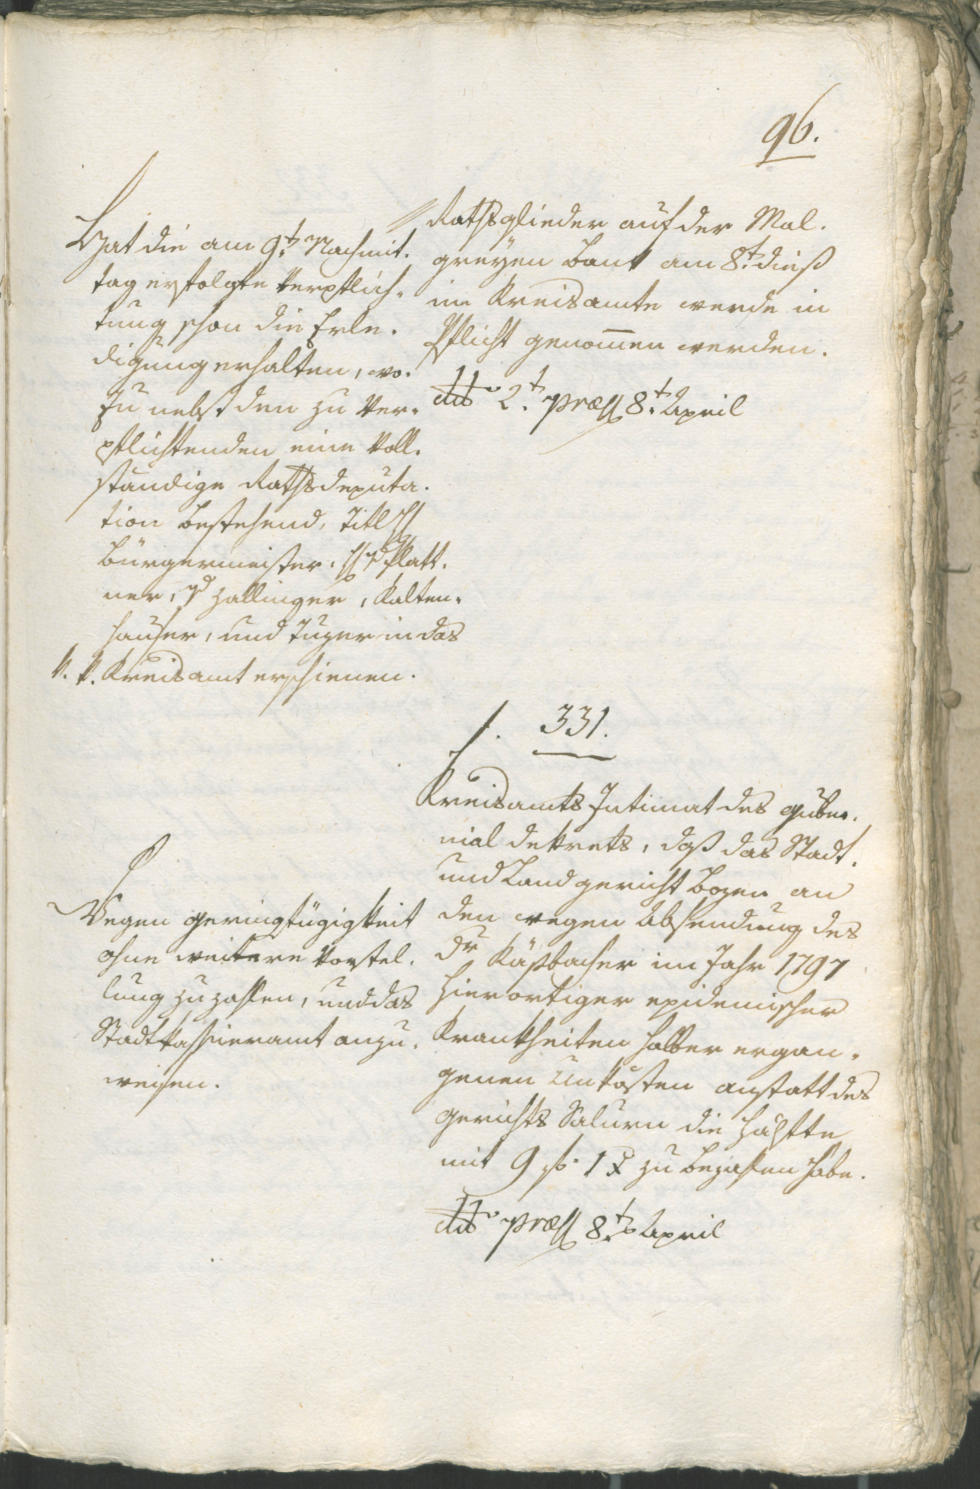 96.
Hat die am 9t. Nachmit-
tag erfolgte Verpflich-
tung schon die Erle-
digung erhalten, wo-
zu nebst den zu Ver-
pflichtenden eine Voll-
ständige Rathsdeputa-
tion bestehend, Titl H
Bürgermeister, Platt-
ner, Hallinger, Kalten-
hauser, und Tuzer in das
k. k. Kreisamt erschienen.
Rathsglieder auf der Mal-
greyen Bank am 8t. dieß
im Kreisamte werde in
Pflicht genommen werden.
dto 2t. præs 8t. April
f. 331.
Kreisamts Intimat des guber-
nial dekrets, daß das Stadt-
und Landgericht Bozen an
den wegen Absendung des
Dr Käßbacher im Jahr 1797
hierortiger epidemischer
Krankheiten halber ergan-
genen Unkösten anstatt des
gerichts Salurn die Hälfte
mit 9 f. 1 x zu bezahlen habe.
dto præs 8t. April
Wegen geringfügigkeit
ohne weitere Vorstel-
lung zu zahlen, und das
Stadtkassieramt anzu-
weisen.